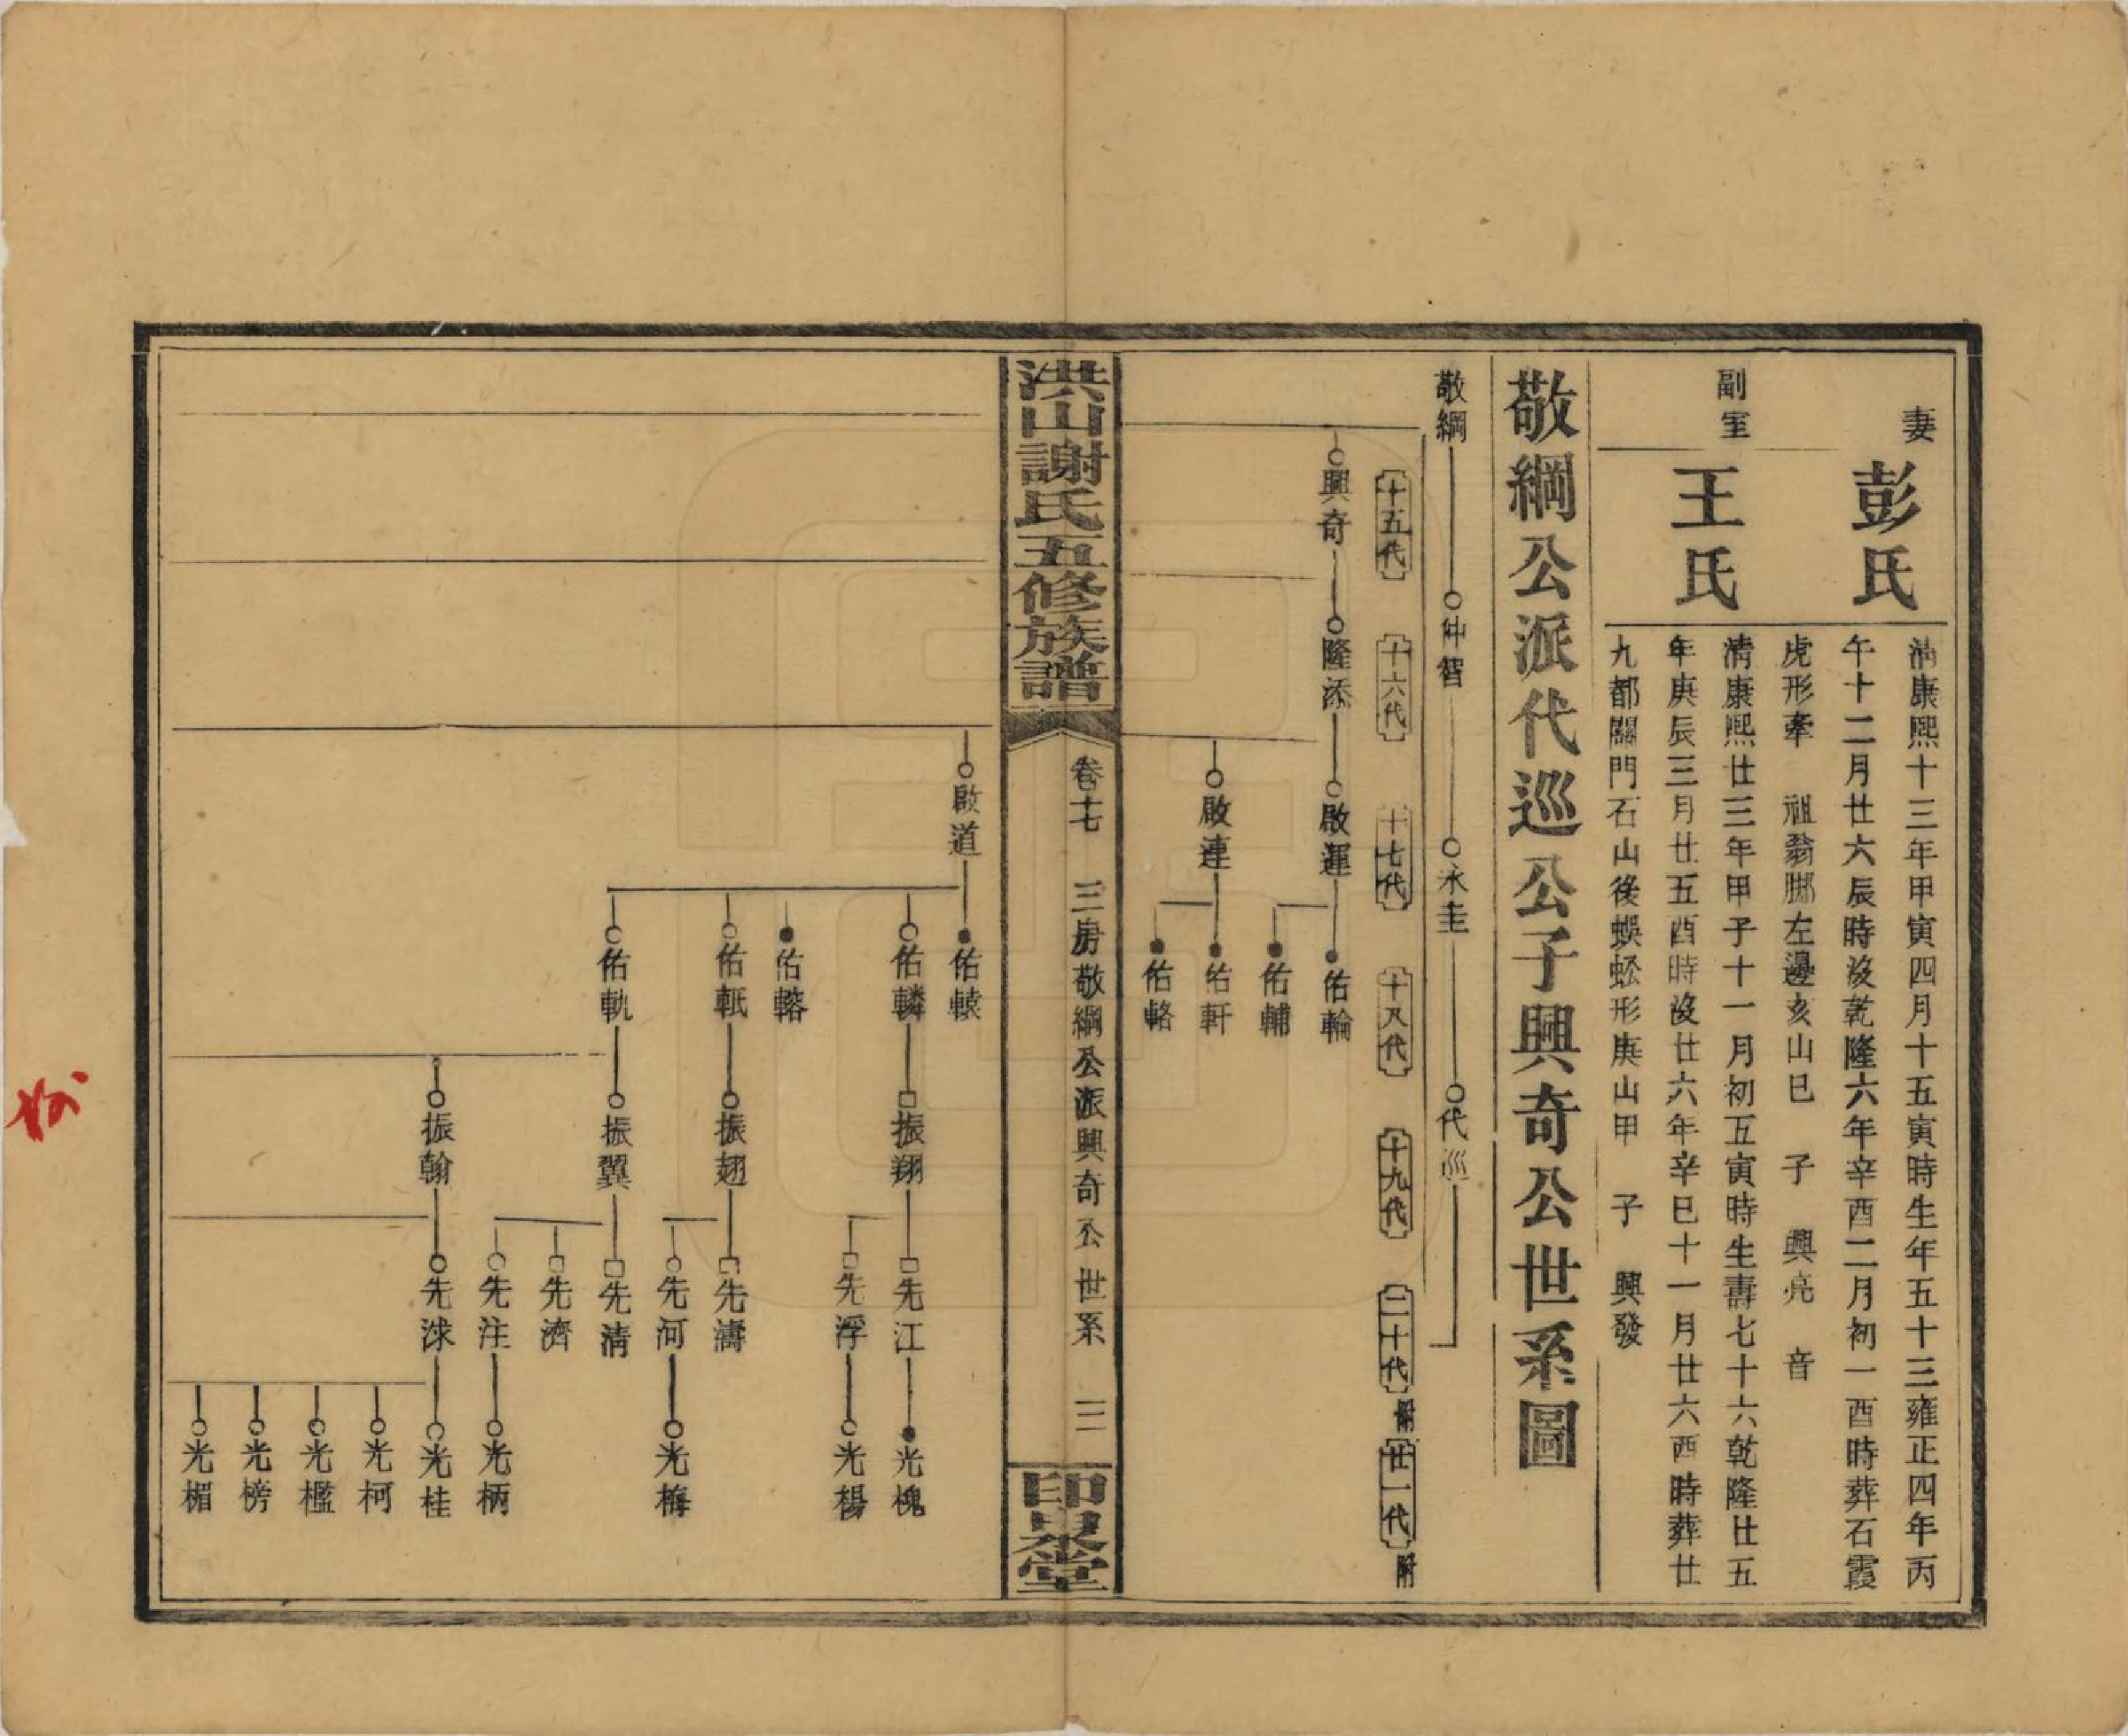 妻
彭氏
清康熙十三年甲寅四月十五寅時生年五十三雍正四年丙
午十二月廿六辰時沒乾隆六年辛酉二月初一酉時葬石霞
虎形牽 祖翁腳左邊亥山巳 子 興亮 音
副室
王氏
清康熙廿三年甲子十一月初五寅時生壽七十六乾隆廿五
年庚辰三月廿五酉時沒廿六年辛巳十一月廿六酉時葬廿
九都關門石山後蜈蚣形庚山甲 子 興發
敬綱公派代巡公子興奇公世系圖
敬綱 仲智 永圭 代巡
十五代 十六代 十七代 十八代 十九代 二十代 附 廿一代 附
興奇 隆添 啟運 佑輪
佑輔
啟連 佑軒
佑輅
洪山謝氏五修族譜
卷十七 三房敬綱公派興奇公世系 三
印泉堂
啟道 佑轅
佑轔 振翔 先江 光槐
先浮 光楊
佑輅
佑軝 振翅 先濤
先河 光梅
佑軌 振翼 先清
先濟
先注 光柄
振翰 先浗 光桂
光柯
光檻
光榜
光楣